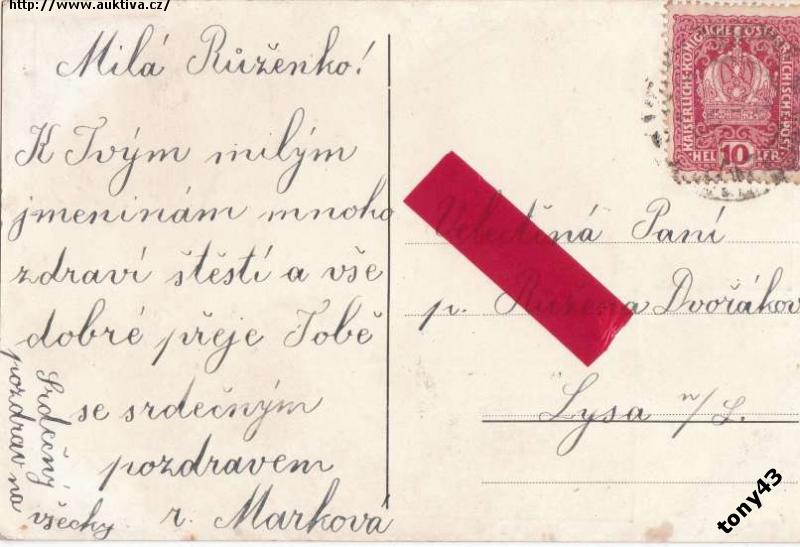 http://www.auktiva.cz/
Milá Růženko!
K Tvým milým
jmeninám mnoho
zdraví štěstí a vše
dobré přeje Tobě
se srdečným
pozdravem
r. Marková
Srdečný
pozdrav na
všechy
KAISERLICHE KÖNIGLICHE ÖSTERREICHISCHE POST
HEL 10 LER
Velectěná Paní
p. Růžena Dvořákov
Lysa n/L.
tony43